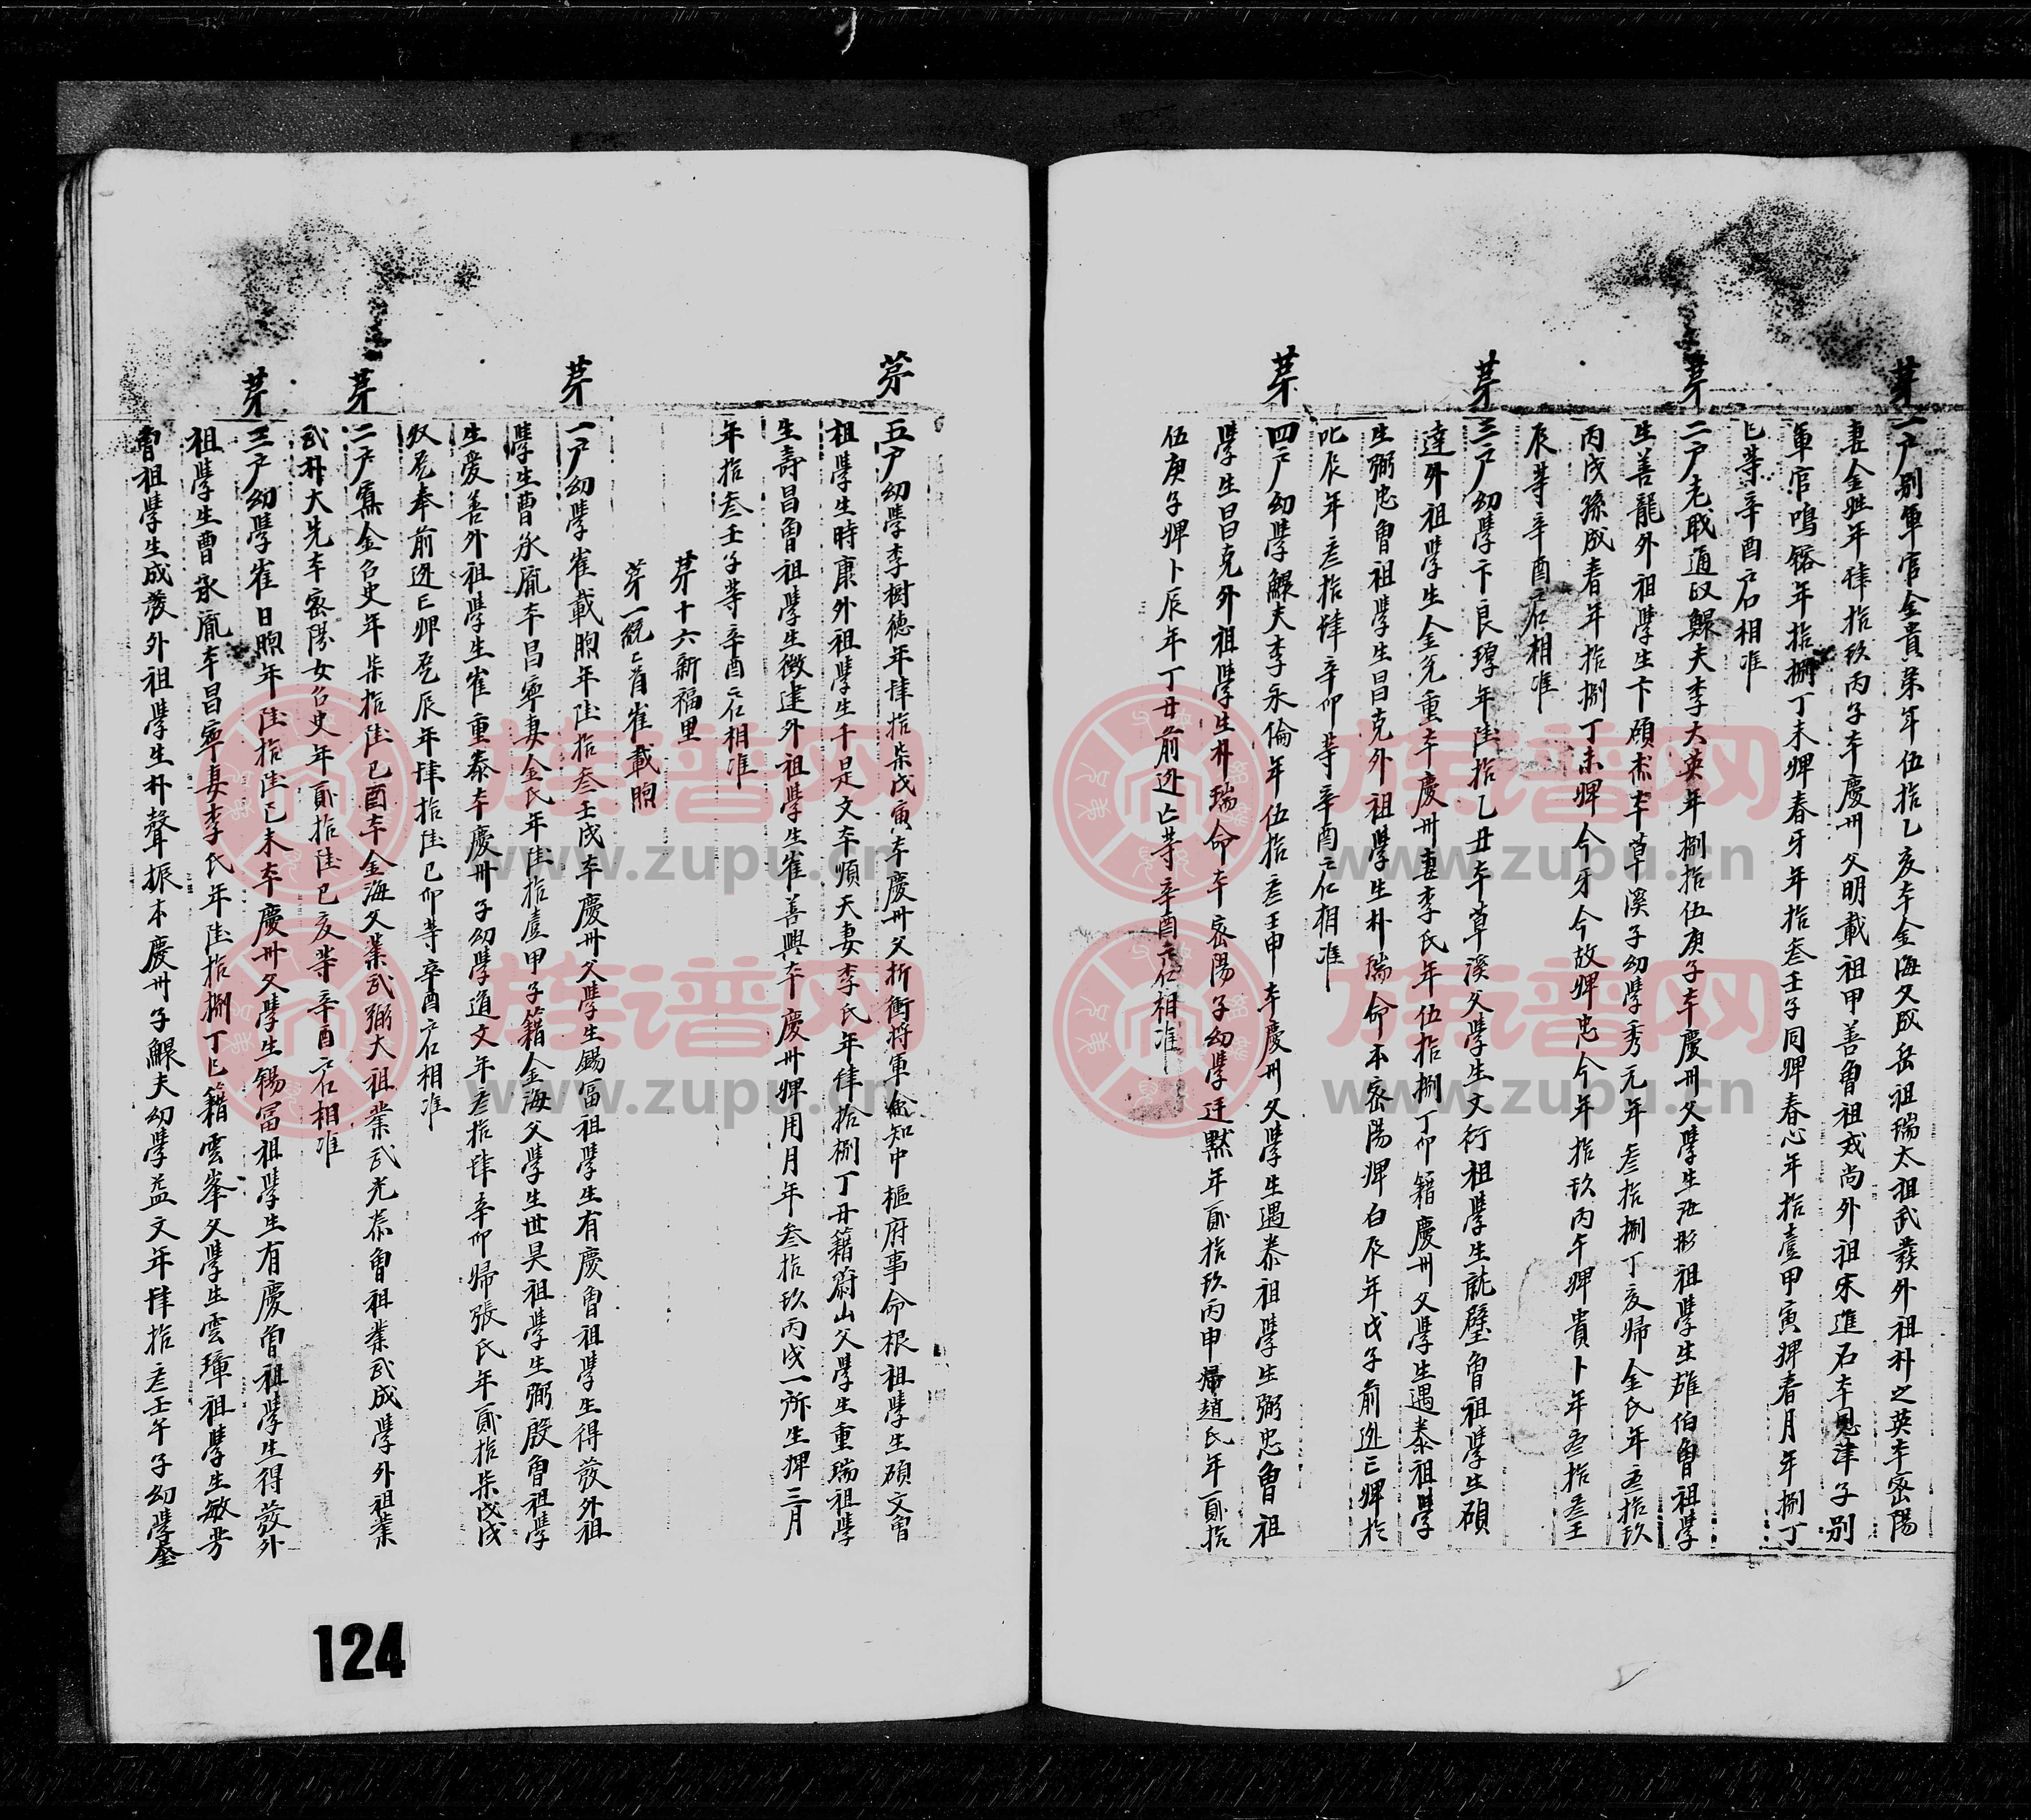 第一户别軍官金貴采年伍拾乙亥本金海父成岳祖瑞太祖武發外祖朴之英本密陽
妻金姓年肆拾玖丙子本慶州父明載祖甲善曾祖戎尚外祖宋進石本恩津子别
軍官鳴鎔年拾捌丁未婢春牙年拾叁壬子同婢春心年拾壹甲寅婢春月年捌丁
巳等辛酉户口相准
第二户老職通政鰥夫李大英年捌拾伍庚子本慶州父學生海彬祖學生雄伯曾祖學
生善龍外祖學生卞碩泰本草溪子幼學秀元年叁拾捌丁亥婦金氏年叁拾玖
丙戌孫成春年拾捌丁未婢今牙今故婢忠今年拾玖丙午婢貴卜年叁拾叁壬
辰等辛酉户口相准
第三户幼學卞良瑋年陸拾乙丑本草溪父學生文衍祖學生就璧曾祖學生碩
達外祖學生金允重本慶州妻李氏年伍拾捌丁卯籍慶州父學生遇泰祖學
生弼忠曾祖學生昌克外祖學生朴瑞命本密陽婢白辰年戊子前逃亡婢於
叱辰年叁拾肆辛卯等辛酉户口相准
第四户幼學鰥夫李永倫年伍拾叁壬申本慶州父學生遇泰祖學生弼忠曾祖
學生昌克外祖學生朴瑞命本密陽子幼學廷默年貳拾玖丙申婦趙氏年貳拾
伍庚子婢卜辰年丁丑前逃亡等辛酉户口相准
第五户幼學李樹德年肆拾柒戊寅本慶州父折衝將軍僉知中樞府事命根祖學生碩文曾
祖學生時康外祖學生千是文本順天妻李氏年肆拾捌丁丑籍蔚山父學生重瑞祖學
生壽昌曾祖學生徵達外祖學生崔善興本慶州婢用月年叁拾玖丙戌一所生婢三月
年拾叁壬子等辛酉户口相准
第十六新福里
第一統統首崔載煦
第一户幼學崔載煦年陸拾叁壬戌本慶州父學生錫冨祖學生有慶曾祖學生得發外祖
學生曹永胤本昌寧妻金氏年陸拾壹甲子籍金海父學生世昊祖學生弼殷曾祖學
生爱善外祖學生崔重泰本慶州子幼學道文年叁拾肆辛卯婦張氏年貳拾柒戊戌
奴老奉前逃亡婢老辰年肆拾陸己卯等辛酉户口相准
第二户寡金召史年柒拾陸己酉本金海父業武弼大祖業武光泰曾祖業武成學外祖業
武朴大先本密陽女召史年貳拾陸己亥等辛酉户口相准
第三户幼學崔日煦年陸拾陸己未本慶州父學生錫冨祖學生有慶曾祖學生得發外
祖學生曹永胤本昌寧妻李氏年陸拾捌丁巳籍雲峯父學生雲璋祖學生敏芳
曾祖學生成發外祖學生朴聲振本慶州子鰥夫幼學益文年肆拾叁壬午子幼學奎
124
族谱网
www.zupu.cn
族谱网
www.zupu.cn
族谱网
www.zupu.cn
族谱网
www.zupu.cn